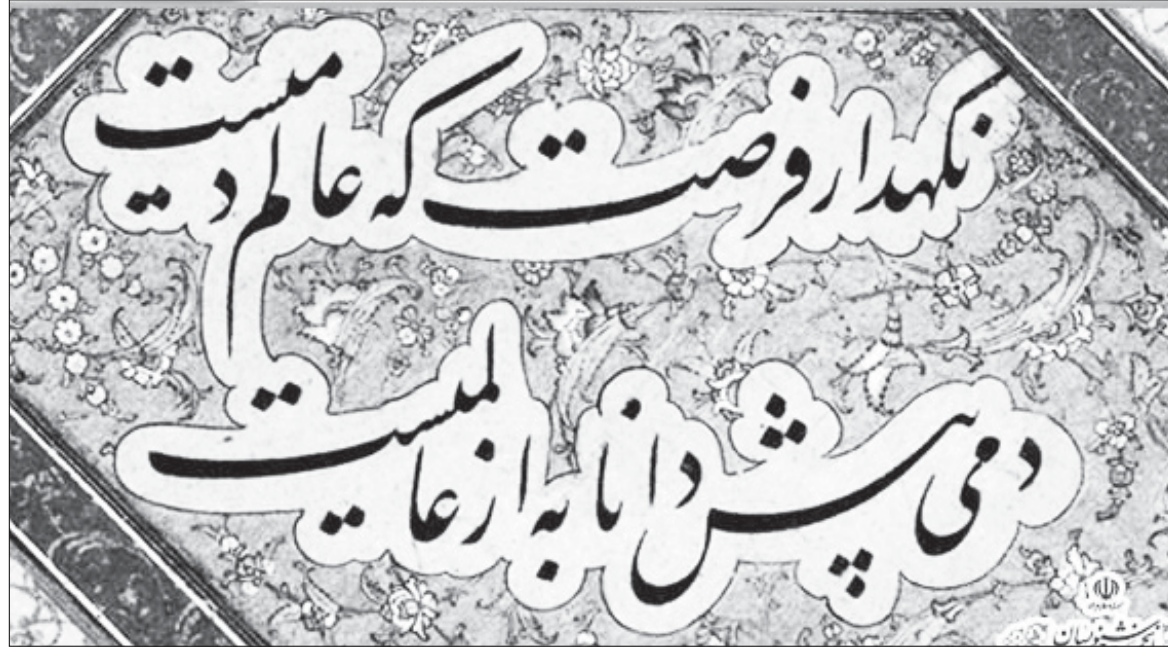 نگهدار فرصت که عالم دمیست
دمی پیش دانا به از عالمیست